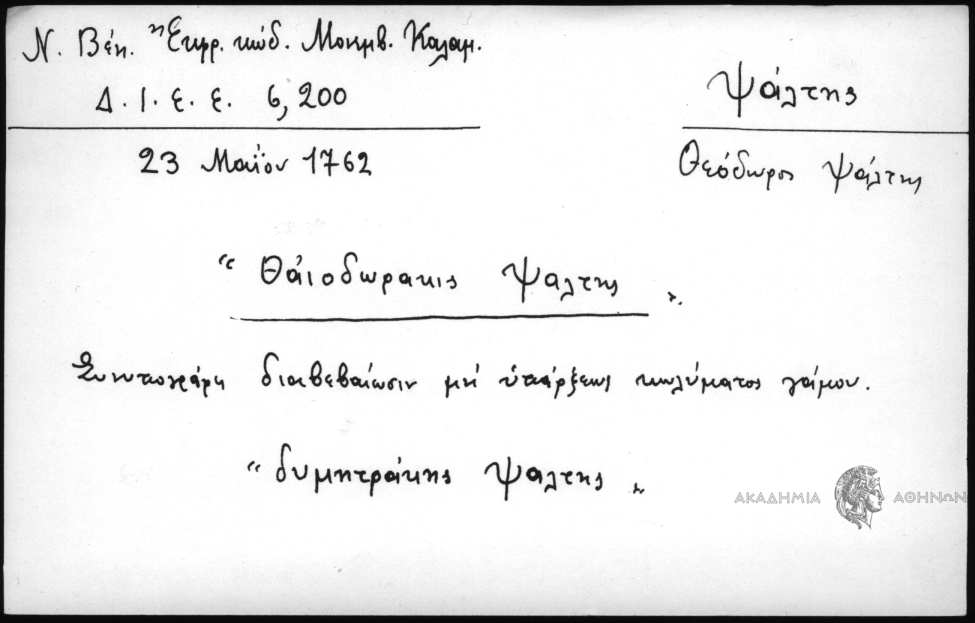 Ν. Βέη. Ἔκφρ. κώδ. Μονεμβ. Καλαμ.
Δ. Ι. Ε. Ε. 6, 200
Ψάλτης
23 Μαΐου 1762
Θεόδωρος Ψάλτης
"Θάιοδωρακις Ψαλτης".
Συνυπογράφη διαβεβαίωσιν μή ὑπάρξεως κωλύματος γάμου.
"δυμητράκης Ψαλτης"
ΑΚΑΔΗΜΙΑ ΑΘΗΝΩΝ